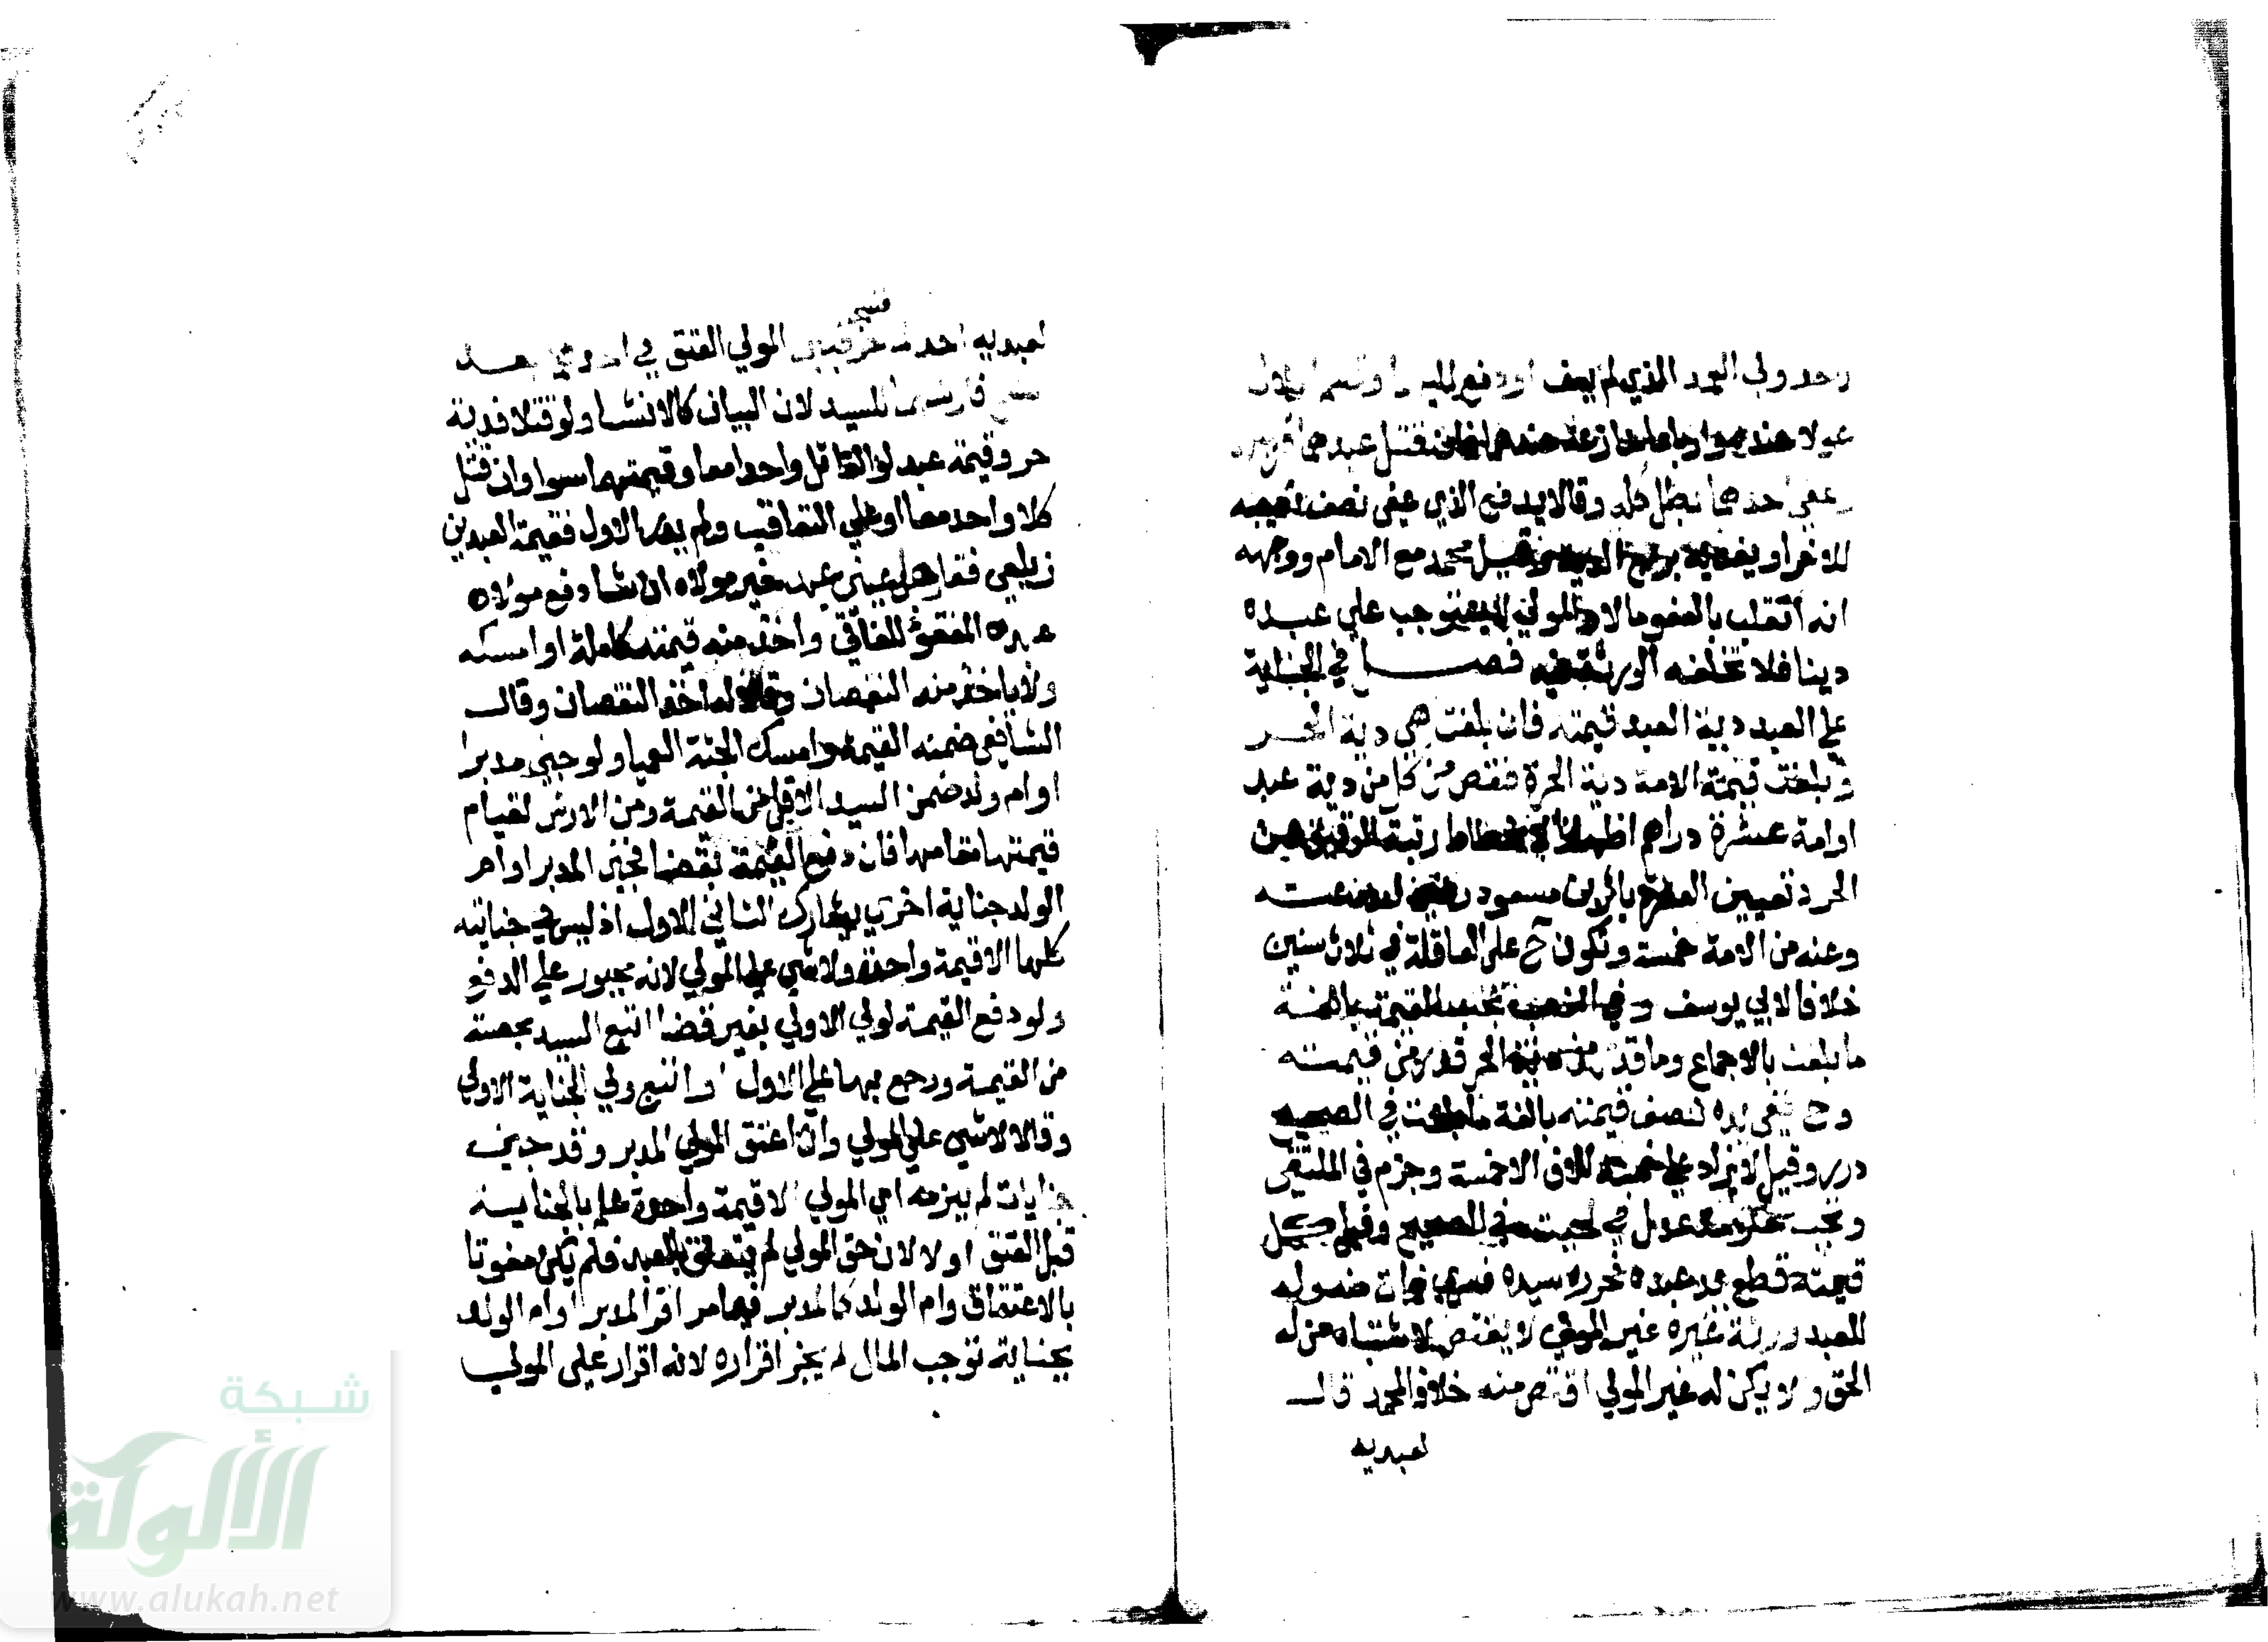 احد ولي العمد الذي لم يعف او دفع اليه
عولا عندهما فان قتل عبدهما قريبه
وعفى احدهما بطل كله وقالا يدفع الذي عفى نصف نصيبه
للاخر او يفديه بربع الدية وقيل محمد مع الامام ووجهه
انه انقلب بالعفو مالا والمولى لا يستوجب على عبده
دينا فلا تخلفه الورثة فيه فصل في الجناية
على العبد دية العبد قيمته فان بلغت هي دية الحر
وبلغت قيمة الامة دية الحرة نقص من كل من دية عبد
او امة عشرة دراهم اظهارا لانحطاط رتبة الرقيق عن
الحر وتعيين العشرة باثر ابن مسعود رضي الله عنه
وعنه من الامة خمسة وتكون ح على العاقلة في ثلاث سنين
خلافا لابي يوسف وفي الغصب تجب القيمة بالغة
ما بلغت بالاجماع وما قدر من دية الحر قدر من قيمته
وح ففي يده نصف قيمته بالغة ما بلغت في الصحيح
درر وقيل لا يزاد على خمسة الاف الا خمسة وجزم في الملتقى
وتجب حكومة عدل في لحيته في الصحيح وقيل كل
قيمته قطع يد عبده فحرره سيده فسرى فمات منه وله
للعبد ورثة غيره غير المولى لا يقتص لاشتباه من له
الحق والا يكن له غير المولى اقتص منه خلافا لمحمد قال
لعبديه
لعبديه احدكما حر فبين المولى العتق في احدهما بعد
فشجا
الشج فارشهما للسيد لان البيان كالانشا ولو قتلا فدية
حر وقيمة عبد لو القاتل واحدا معا وقيمتهما سوا وان قتل
كلا واحد معا او على التعاقب ولم يدر الاول فقيمة العبدين
زيلعي فقا رجل عيني عبد غير مولاه ان شا دفع مولاه
عبده المفقو للفاقي واخذ منه قيمته كاملة او امسكه
ولا ياخذ منه النقصان وقالا له اخذ النقصان وقال
الشافعي ضمنه القيمة وامسك الجثة العميا ولو جنى مدبر
او ام ولد ضمن السيد الاقل من القيمة ومن الارش لقيام
قيمتها مقامها فان دفع القيمة بقضا فجنى المدبر او ام
الولد جناية اخرى يشارك الثاني الاول اذ ليس في جنايته
كلها الا قيمة واحدة ولا شي على المولى لانه مجبور على الدفع
ولو دفع القيمة لولي الاولى بغير قضا اتبع السيد بحصته
من القيمة ورجع بها على الاول او اتبع ولي الجناية الاولى
وقالا لا شي على المولى وان اعتق المولى المدبر وقد جنى
جنايات لم يلزمه اي المولى الا قيمة واحدة علم بالجناية
قبل العتق او لا لان حق المولى لم يتعلق بالعبد فلم يكن مفوتا
بالاعتاق وام الولد كالمدبر فيما مر اقر المدبر او ام الولد
بجناية توجب المال لم يجز اقراره لانه اقرار على المولى
شبكة
الألوكة
www.alukah.net